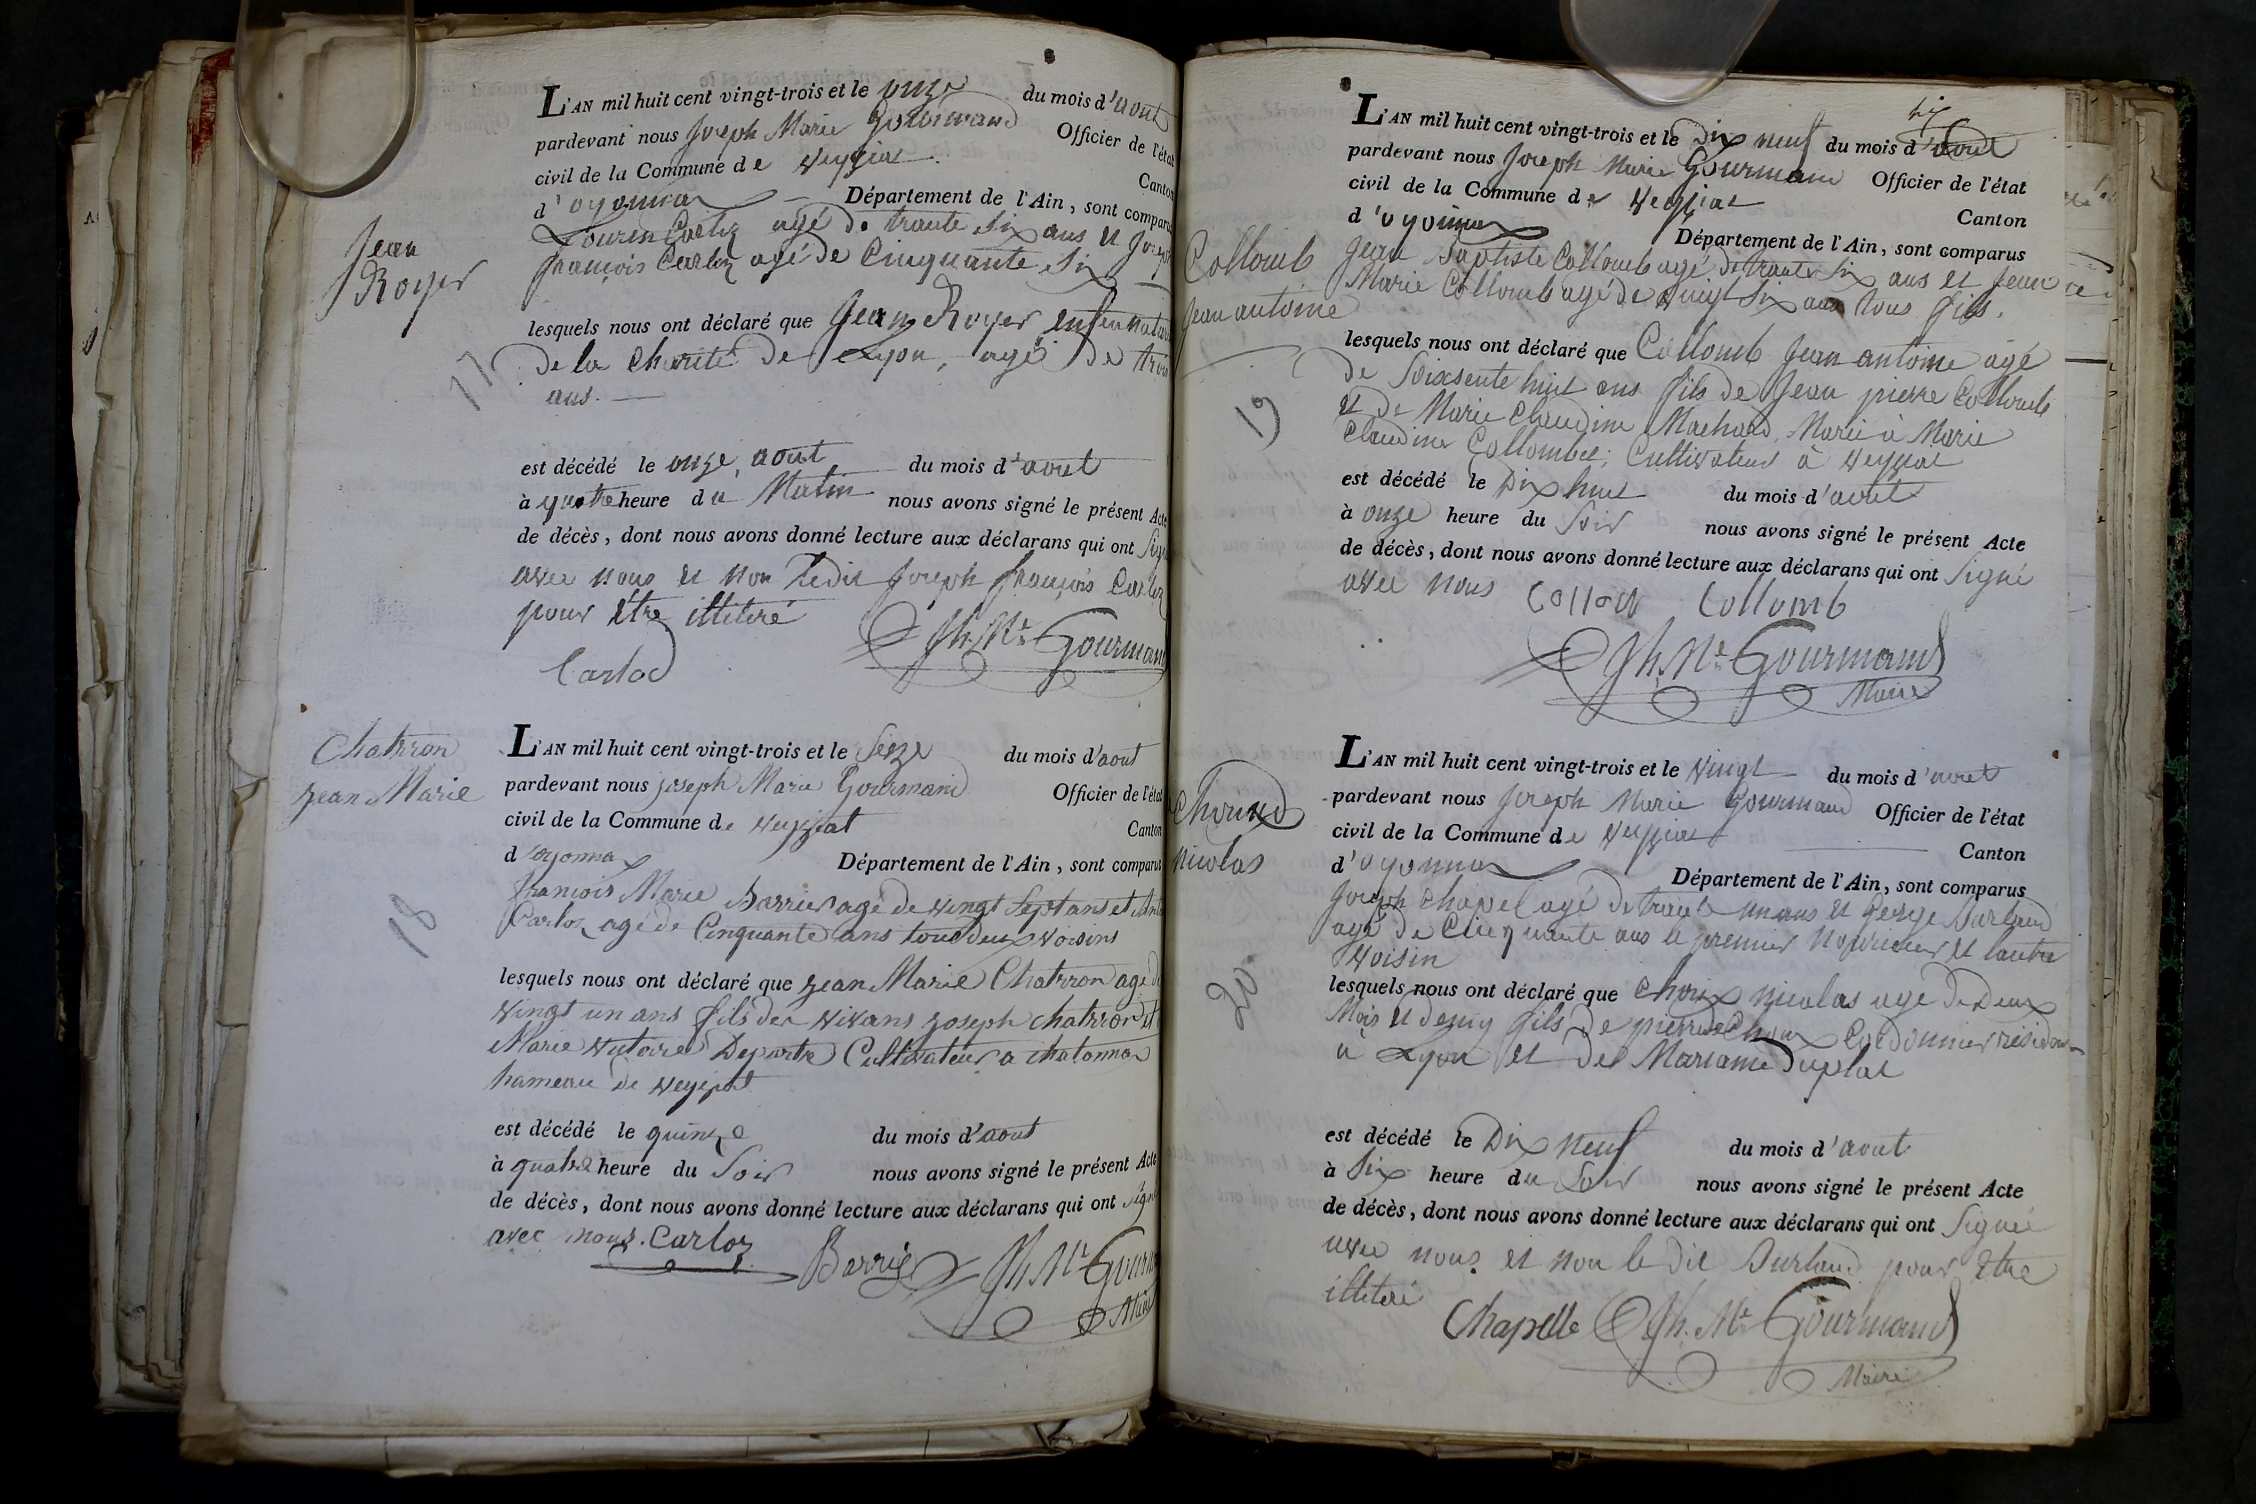 L'AN mil huit cent vingt-trois et le onze du mois d'aout
pardevant nous Joseph Marie Gourmand Officier de l'état
civil de la Commune de Veyziat Canton
d'oyonnax Département de l'Ain, sont comparu
Carloz agé de trante six ans et Joseph
françois Carloz agé de Cinquante six
Jean
Royer
lesquels nous ont déclaré que Jean Royer enfen
17
de la Charité de Lyon, agé de trois
ans.
est décédé le onze aout du mois d'aout
à quatre heure du Matin nous avons signé le présent Acte
de décès, dont nous avons donné lecture aux déclarans qui ont Signé
avec nous et non ledit Joseph françois Carloz
pour être illiteré
Jh. Me. Gourmand
Carloz
Chatrron
Jean Marie
L'AN mil huit cent vingt-trois et le Seize du mois d'aout
pardevant nous joseph Marie Gourmand Officier de l'état
civil de la Commune de Veyziat Canton
d'oyonnax Département de l'Ain, sont comparus
18
françois Marie Barrier agé de vingt Sept ans et
Carloz agé de Cinquante ans tous deux voisins
lesquels nous ont déclaré que Jean Marie Chatrron agé de
vingt un ans fils des vivans Joseph chatrron et
Marie victoire Cultivateur a chatonnax
hameau de veyziat
est décédé le quinze du mois d'aout
à quatre heure du Soir nous avons signé le présent Acte
de décès, dont nous avons donné lecture aux déclarans qui ont signé
avec nous. Carloz Barrier Jh. Me. Gourm
L'AN mil huit cent vingt-trois et le Dix neuf du mois d'aout
pardevant nous Joseph Marie Gourmand Officier de l'état
civil de la Commune de Veyziat Canton
d'oyonnax Département de l'Ain, sont comparus
Collomb
Jean antoine
Jean Baptiste Collomb agé de trante six ans et Jean
Marie Collomb agé de vingt six ans tous fils.
lesquels nous ont déclaré que Collomb Jean antoine agé
19
de Soixsente huit ans fils de Jean pierre Collomb
et de Marie Claudine Machard, Marié à Marie
Claudine Collombet; Cultivateur à Veyziat
est décédé le Dix huit du mois d'aout
à onze heure du Soir nous avons signé le présent Acte
de décès, dont nous avons donné lecture aux déclarans qui ont Signé
avec nous Collomb
Jh. Me. Gourmand
Maire
L'AN mil huit cent vingt-trois et le Vingt du mois d'aout
pardevant nous Joseph Marie Gourmand Officier de l'état
civil de la Commune de Veyziat Canton
d'oyonnax Département de l'Ain, sont comparus
Nicolas
Joseph Chapel agé de trante un ans et George
agé de Cinquante ans le premier nourricier et lautre
Voisin
20.
lesquels nous ont déclaré que Choux Nicolas agé de Deux
Mois et demy fils de pierre Choux Cordonnier
à Lyon et de Mariame Duplat
est décédé le Dix neuf du mois d'aout
à Six heure du Soir nous avons signé le présent Acte
de décès, dont nous avons donné lecture aux déclarans qui ont Signé
avec nous et non le dit pour Etre
illiteré
Chapelle Jh. Me. Gourmand
Maire